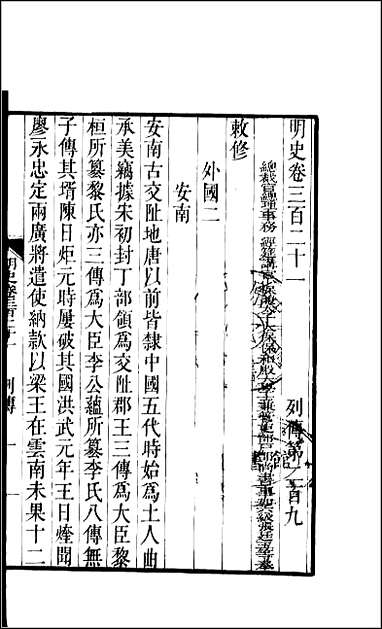 明史卷三百二十一 列傳第二百九
總裁官總理事務 經筵講官少保兼太子太保保和殿大學士兼管吏部戶部尚書事加六級張廷玉等奉
敕修
外國二
安南
安南古交阯地唐以前皆隸中國五代時始爲土人曲
承美竊據宋初封丁部領爲交阯郡王三傳爲大臣黎
桓所篡黎氏亦三傳爲大臣李公蘊所篡李氏八傳無
子傳其壻陳日炬元時屢破其國洪武元年王日煃聞
廖永忠定兩廣將遣使納款以梁王在雲南未果十二
明史卷三百二十一 列傳 一